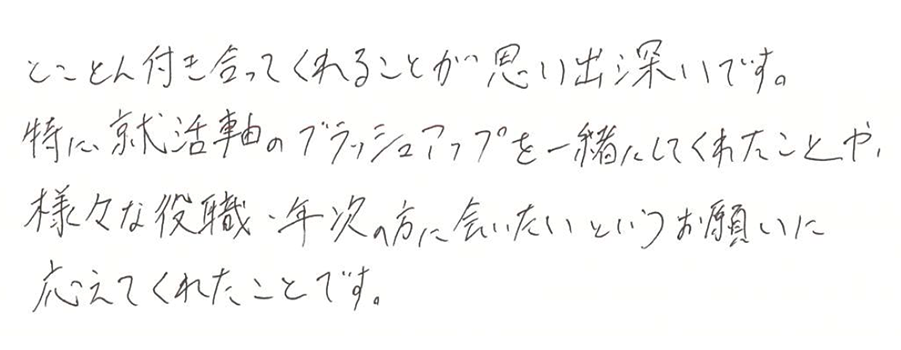 とことん付き合ってくれることが思い出深いです。
特に、就活軸のブラッシュアップを一緒にしてくれたことや、
様々な役職・年次の方に会いたいというお願いに
応えてくれたことです。